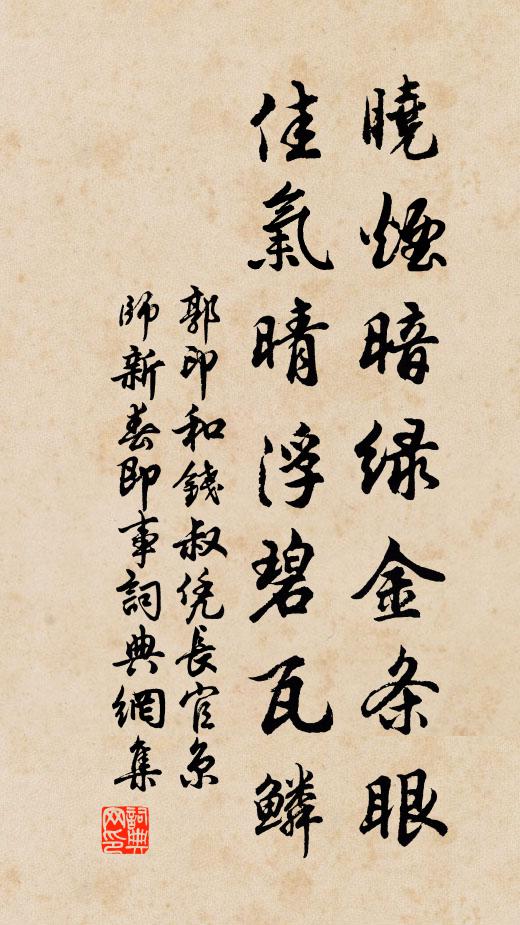 曉煙暗綠金条眼
佳氣晴浮碧瓦鱗
郭印和錢叔凭長官京
師新春即事詞典網集
詞典
网印